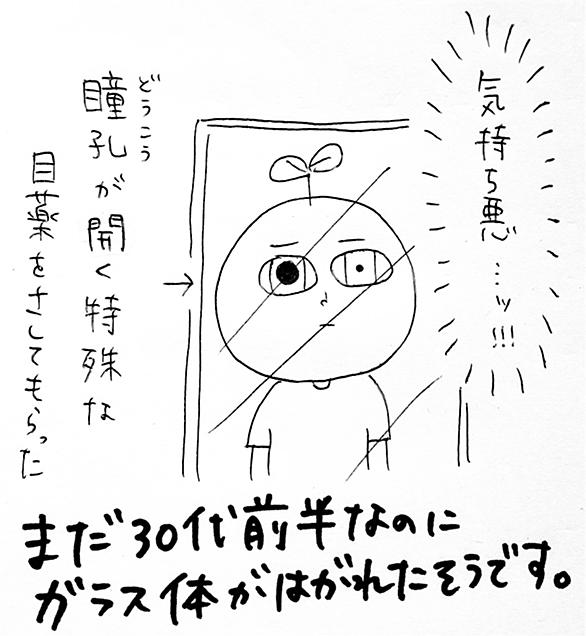 気持ち悪…ッ!!!
どうこう
瞳孔が開く特殊な
目薬をさしてもらった
→
まだ30代前半なのに
ガラス体がはがれたそうです。